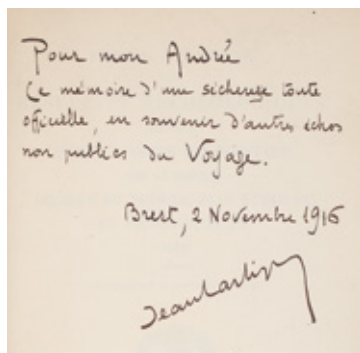 Pour mon André
Ce mémoire d'une sécheresse toute
officielle, en souvenir d'autres échos
non publics du Voyage.
Brest, 2 Novembre 1916
Jean Lartigue